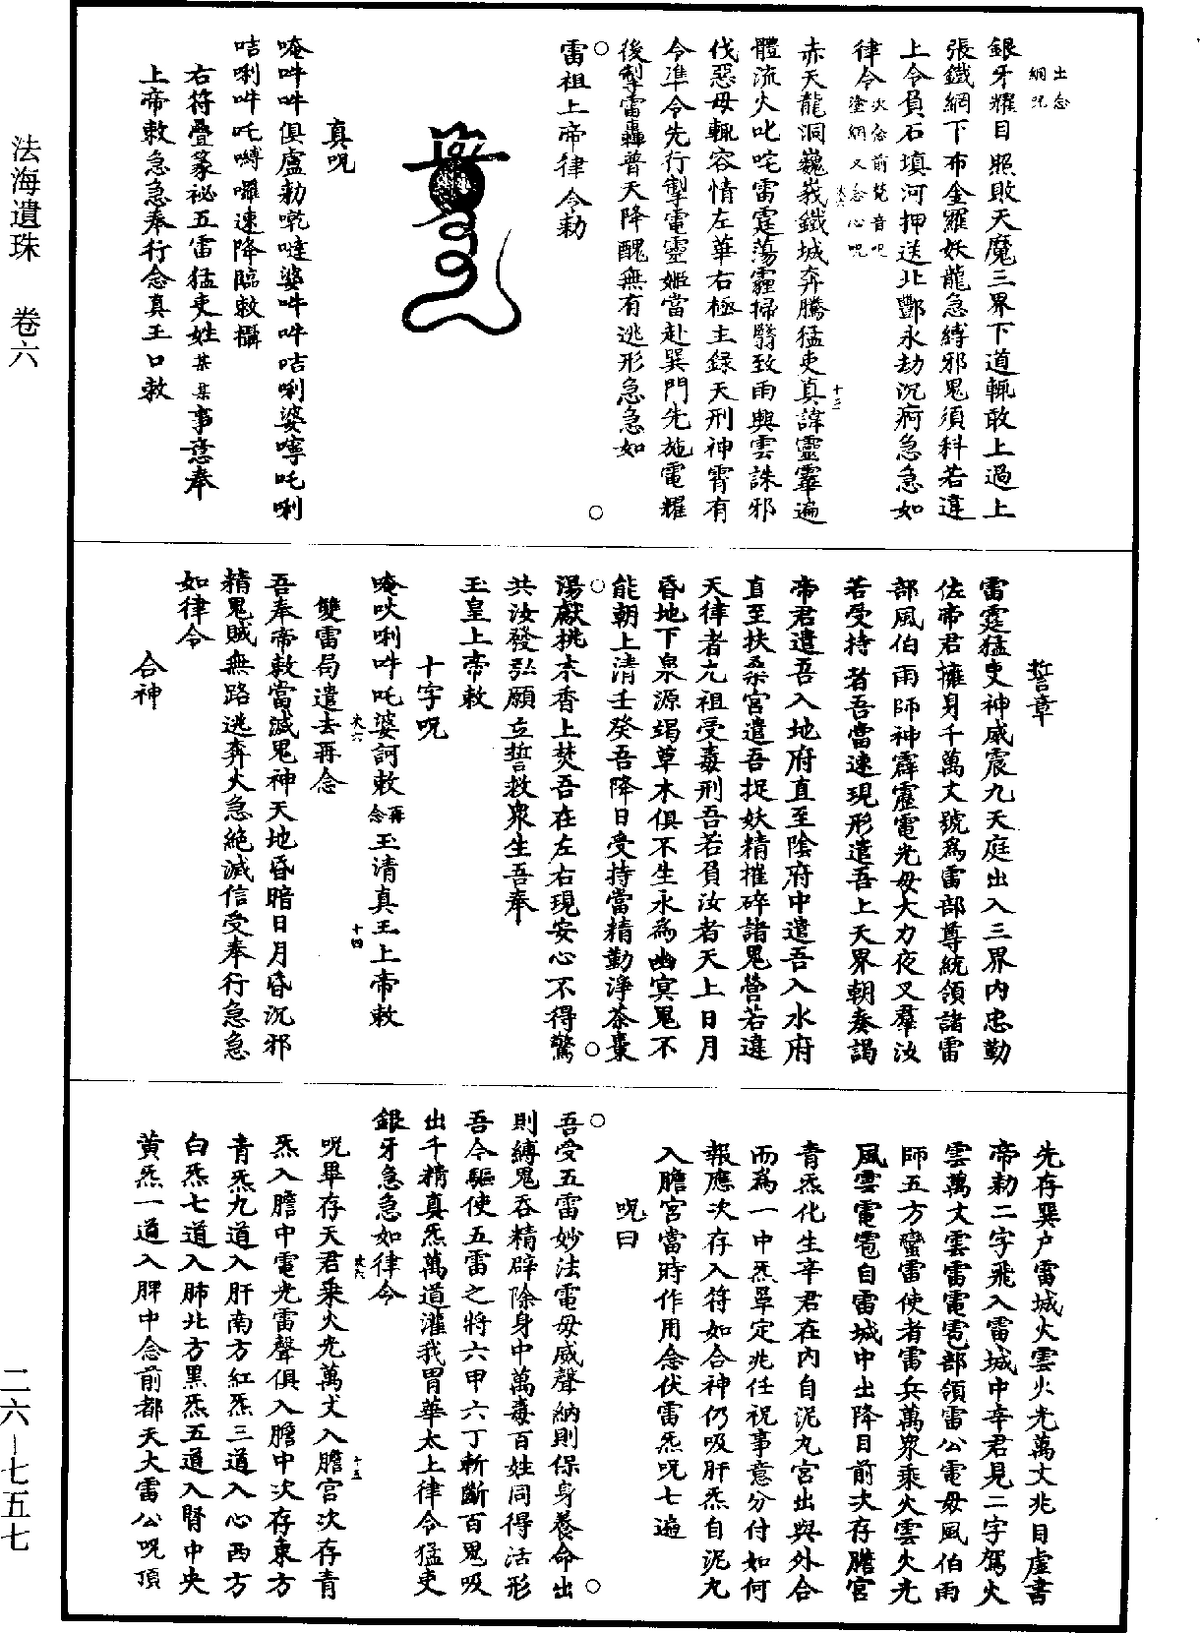 出念
綱咒
銀牙耀目照敗天魔三界下道輒敢上過上
張鐵網下布金羅妖龍急縛邪鬼須科若違
上令負石填河押送北酆永劫沉痾急急如
律令次念前梵音咒
塗網又念心咒
赤天龍洞巍峩鐵城奔騰猛吏真諱靈霏遍
體流火叱咤雷霆蕩霾掃翳致雨興雲誅邪
伐惡毋輒容情左華右極主錄天刑神霄有
令準令先行掣電靈姬當赴巽門先施電耀
後掣雷轟普天降醜無有逃形急急如
○
○
雷祖上帝律令勅
真咒
唵吽吽俱盧勅亁㗳婆吽吽咭唎婆嚀吒唎
咭唎吽吒嚩囉速降臨敕攝
右符疊篆祕五雷猛吏姓某某事意奉
上帝敕急急奉行念真王口敕
誓章
雷霆猛吏神威震九天庭出入三界内忠勤
佐帝君擁身千萬丈號為雷部尊統領諸雷
部風伯雨師神霹靂電光母大力夜叉羣汝
若受持者吾當速現形遣吾上天界朝奏謁
帝君遣吾入地府直至陰府中遣吾入水府
直至扶桑宮遣吾捉妖精摧碎諸鬼營若違
天律者九祖受毒刑吾若負汝者天上日月
昏地下泉源竭草木俱不生永為幽冥鬼不
能朝上清壬癸吾降日受持當精勤淨茶棗
○
○
湯獻桃木香上焚吾在左右現安心不得驚
共汝發弘願立誓救衆生吾奉
玉皇上帝敕
十字咒
唵吙唎吽吒婆訶敕再念玉清真王上帝敕
雙雷局遣去再念
吾奉帝敕當滅鬼神天地昏暗日月昏沉邪
精鬼賊無路逃奔火急絶滅信受奉行急急
如律令
合神
先存巽户雷城火雲火光萬丈兆目虛書
帝勅二字飛入雷城中辛君見二字駕火
雲萬丈雲雷電雹部領雷公電母風伯雨
師五方蠻雷使者雷兵萬衆乘火雲火光
風雲電雹自雷城中出降目前次存膽宮
青炁化生辛君在内自泥丸宮出與外合
而為一中炁罩定兆任祝事意分付如何
報應次存入符如合神仍吸肝炁自泥丸
入膽宮當時作用念伏雷炁咒七遍
咒曰
○
○
吾受五雷妙法電母威聲納則保身養命出
則縛鬼吞精辟除身中萬毒百姓同得活形
吾今驅使五雷之將六甲六丁斬斷百鬼吸
出千精真炁萬道灌我胃華太上律令猛吏
銀牙急急如律令
咒畢存天君乘火光萬丈入膽宮次存青
炁入膽中電光雷聲俱入膽中次存東方
青炁九道入肝南方紅炁三道入心西方
白炁七道入肺北方黑炁五道入腎中央
黄炁一道入脾中念前都天大雷公咒頂
夫六
十三
夫六
十四
夫六
十五
法海遺珠　卷六
二六—七五七